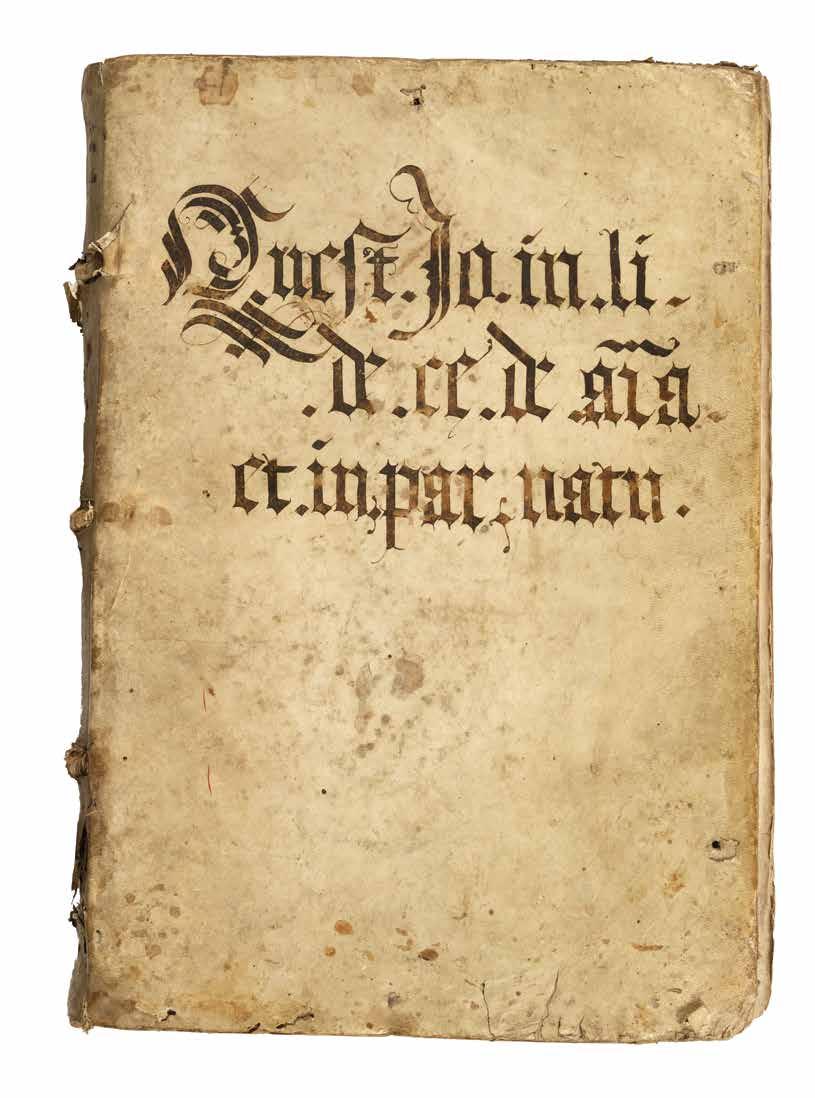 Quest. Jo. in. li-
. de . ce . de . aĩa .
et . in. par . natu .